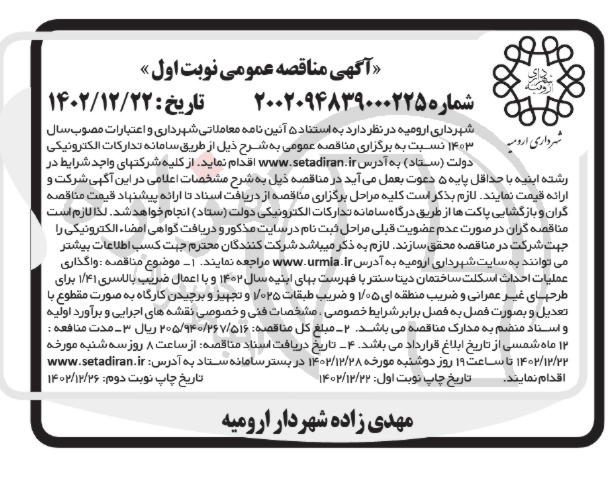 «آگهی مناقصه عمومی نوبت اول»
شماره ۲۰۰۲۰۹۴۸۳۹۰۰۰۲۲۵ تاریخ: ۱۴۰۲/۱۲/۲۲
شهرداری ارومیه
شهرداری ارومیه در نظر دارد به استناد ۵ آئین نامه معاملاتی شهرداری و اعتبارات مصوب سال
۱۴۰۳ نسبت به برگزاری مناقصه عمومی به شرح ذیل از طریق سامانه تدارکات الکترونیکی
دولت (ستاد) به آدرس www.setadiran.ir اقدام نماید. از کلیه شرکتهای واجد شرایط در
رشته ابنیه با حداقل پایه ۵ دعوت بعمل می آید در مناقصه ذیل به شرح مشخصات اعلامی در این آگهی شرکت و
ارائه قیمت نمایند. لازم بذکر است کلیه مراحل برگزاری مناقصه از دریافت اسناد تا ارائه پیشنهاد قیمت مناقصه
گران و بازگشایی پاکت ها از طریق درگاه سامانه تدارکات الکترونیکی دولت (ستاد) انجام خواهد شد. لذا لازم است
مناقصه گران در صورت عدم عضویت قبلی مراحل ثبت نام در سایت مذکور و دریافت گواهی امضاء الکترونیکی را
جهت شرکت در مناقصه محقق سازند. لازم به ذکر میباشد شرکت کنندگان محترم جهت کسب اطلاعات بیشتر
می توانند به سایت شهرداری ارومیه به آدرس www.urmia.ir مراجعه نمایند. ۱_ موضوع مناقصه : واگذاری
عملیات احداث اسکلت ساختمان دیتا سنتر با فهرست بهای ابنیه سال ۱۴۰۲ و با اعمال ضریب بالاسری ۱/۴۱ برای
طرحهای غیر عمرانی و ضریب منطقه ای ۱/۰۵ و ضریب طبقات ۱/۰۲۵ و تجهیز و برچیدن کارگاه به صورت مقطوع با
تعدیل و بصورت فصل به فصل برابر شرایط خصوصی . مشخصات فنی و خصوصی نقشه های اجرایی و برآورد اولیه
و اسناد منضم به مدارک مناقصه می باشد. ۲_ مبلغ کل مناقصه: ۲۰۵/۹۴۰/۲۶۷/۵۱۶ ریال ۳_ مدت مناقصه :
۱۲ ماه شمسی از تاریخ ابلاغ قرارداد می باشد. ۴_ تاریخ دریافت اسناد مناقصه: از ساعت ۸ روز سه شنبه مورخه
۱۴۰۲/۱۲/۲۲ تا ساعت ۱۹ روز دوشنبه مورخه ۱۴۰۲/۱۲/۲۸ در بستر سامانه ستاد به آدرس: www.setadiran.ir
اقدام نمایند. تاریخ چاپ نوبت اول: ۱۴۰۲/۱۲/۲۲ تاریخ چاپ نوبت دوم: ۱۴۰۲/۱۲/۲۶
مهدی زاده شهردار ارومیه